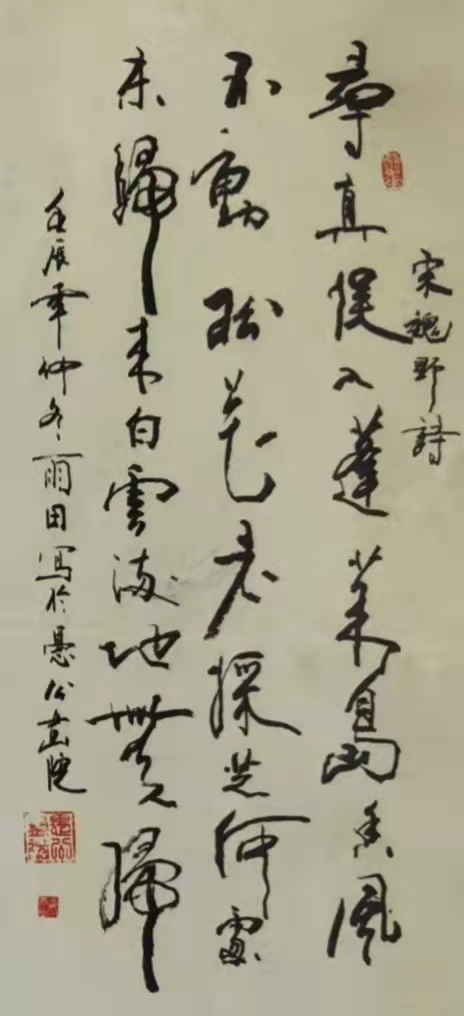 宋魏野詩
尋真误入蓬萊島香風
不動松花老採芝何處
未歸来白雲滿地無人掃
壬辰年仲冬雨田写於愚公画院